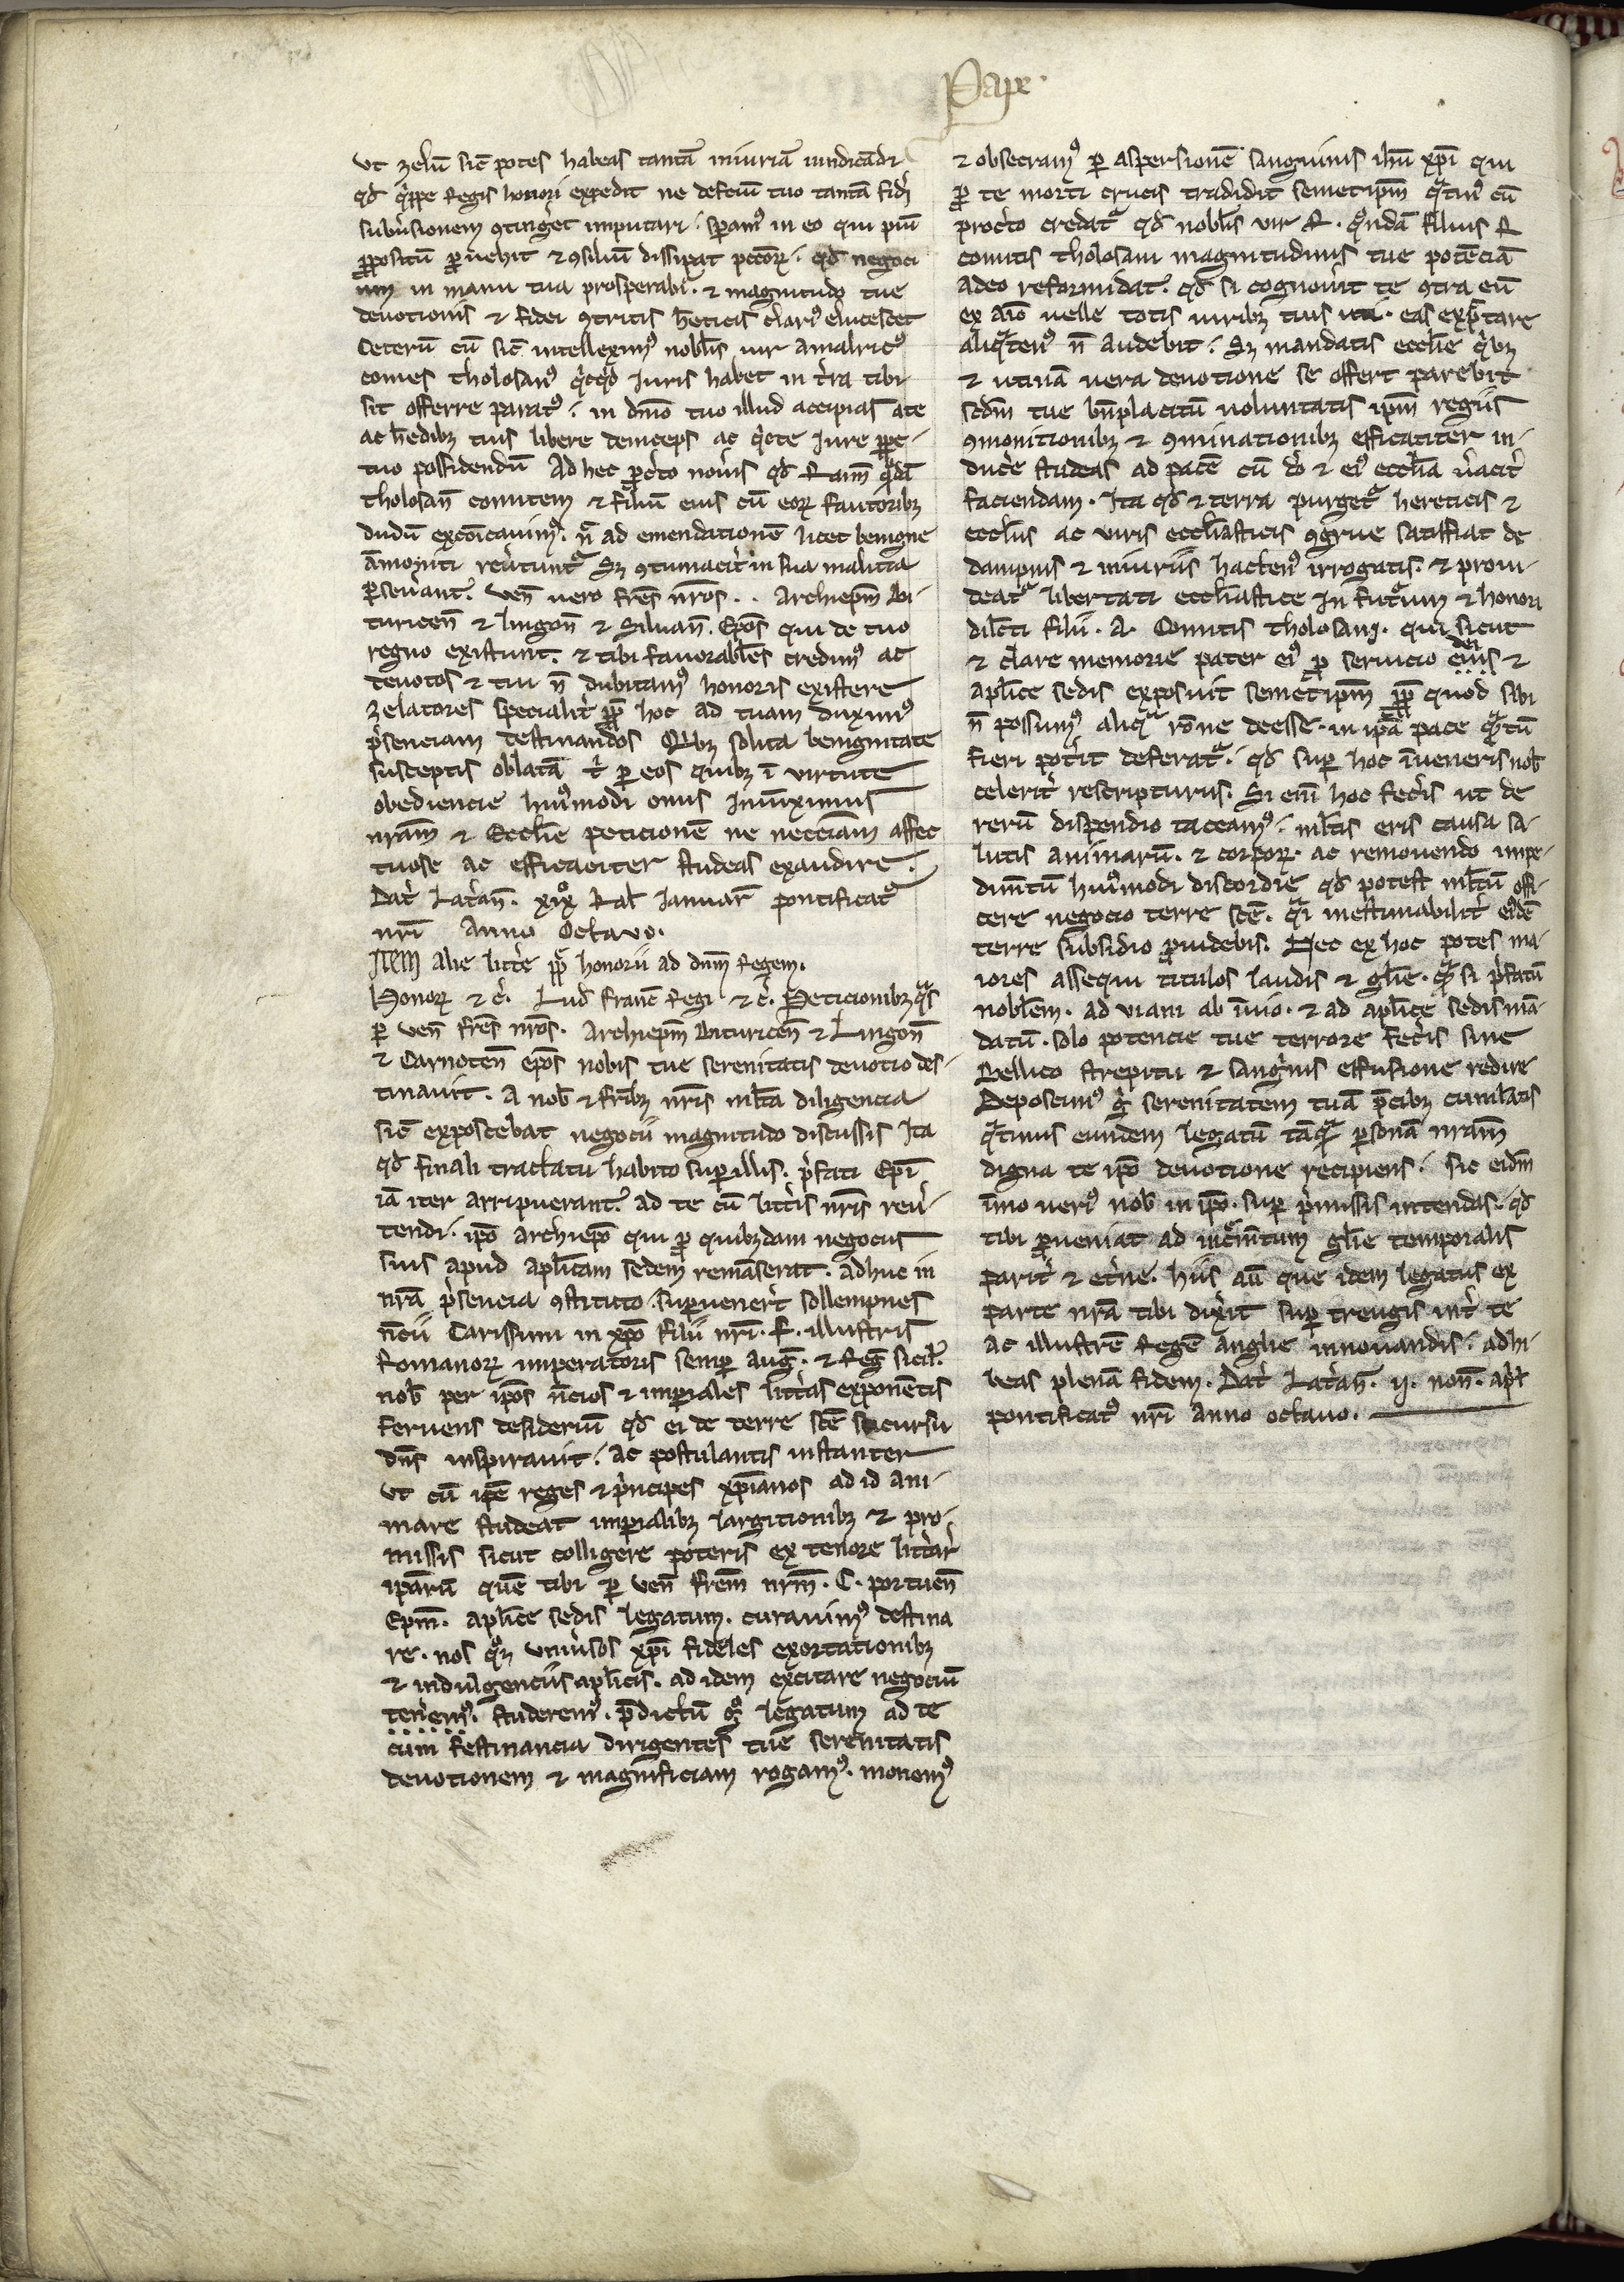 Pape.
ut zelū sic̄ potes habeas tantā iniuriā uindicādi
qd̄ qͥppe Regis honori expedit ne defectui tuo tantā fidei
subuͥsionem ꝯtingͥet imputari. spamꝰ in eo qui piū
ꝓpositū ꝓuehit ⁊ ꝯsiliū dissipat pcc̄oꝝ. qd̄ negoci
um in manu tua prosperabiͭ. ⁊ magnitudo tue
deuotionis ⁊ fidei ꝯtritis h̄eticis clariꝰ elucescet
Ceterū cū sic̄ intelleximꝰ nobl̄is uir amalricꝰ
comes tholosanꝰ qͥcqͥd Iuris habet in tͥra tibi
sit offerre paratꝰ. in dn̄io tuo illud accipias a te
ac h̄edibꝫ tuis libere deinceps ac qͥete Iure ꝑpe-
tuo possidendū Ad hec ꝓcͥto noūis qd̄ Raim̄ qͦdā
tholosan̄ comitem ⁊ filiū eius cū eoꝝ fautoribꝫ
dudū excōicauimꝰ. n̄ ad emendationē licet benigne
āmoniti reuͥtunͭ Sꝫ ꝯtumacitͥ in sua malitia
ꝑseūantꝰ. uen̄ uero fr̄es nr̄os. . archiep̄m Bi-
turicen̄ ⁊ lingon̄ ⁊ Siluan̄. Ep̄os qui de tuo
regno existunt. ⁊ tibi fauorabl̄es credimꝰ ac
deuotos ⁊ tui n̄ dubitamꝰ honoris existere
zelatores specialitͥ ꝓp̄ hoc ad tuam duximꝰ
pͥsenciam destinandos Qͥbꝫ solita benignitate
susceptis oblatā tͥ ꝑ eos quibꝫ ī virtute
obediencie huiꝰmodi onus Iniunximus
nr̄am ⁊ Eccl̄ie peticionē ne nec̄ciam affec
tuose ac efficaciter studeas exaudire.
Datͥ Latͥan̄. xixͦ kal̄ Ianuar̄ pontificatꝰ
nr̄i Anno Octauo.
Item alie litt̄e pp̄ honorii ad dn̄m Regem.
Honoꝝ ⁊ c̄. Lud̄ franc̄ Regi ⁊ c̄. Peticionibꝫ qͣs
ꝑ uen̄ fr̄es nr̄os. Archiep̄m Bituricen̄ ⁊ Lingon̄
⁊ Carnoten̄ ep̄os nobis tue serenitatis deuotio des-
tinauit. A nob̄ ⁊ fr̄ibꝫ nr̄is ml̄ta diligencia
sic̄ exposcebat negocii magnitudo discussis Ita
qd̄ finali tractatu habito suꝑ illis. pͥfati Ep̄i
iā iter arripuerantꝰ. ad te cū litt̄is nr̄is reuͥ-
tendi. ip̄o archiep̄o qui ꝓ quibꝫdam negociis
suis apud apl̄icam sedem remāserat. adhuc in
nr̄a pͥsencia ꝯstituto. suꝑuenerͥt sollempnes
nc̄ii Carissimi in xp̄o filii nr̄i. F. illustris
Romanoꝝ imperatoris semꝑ aug̅. ⁊ Reg̅ sicil̄.
nob̄ per ip̄os nc̄ios ⁊ imꝑiales litt̄as exponētis
feruens desideriū qd̄ ei de terre sc̄e sucursu
dn̄s inspirauit. ac postulantis instanter
ut cū ip̄e reges ⁊ pͥncipes xp̄ianos ad id ani-
mare studeat imꝑialibꝫ largitionibꝫ ⁊ pro-
missis sicut colligere poteris ex tenore litt̄ar̄
ip̄arū quē tibi ꝑ uen̄ fr̄em nr̄m. C. portuen̄
Ep̄m. apl̄ice sedis legatum. curauimꝰ destina
re. nos qͦꝫ uniuͥsos xp̄i fideles exortationibꝫ
⁊ indulgenciis apl̄icis. ad idem excitare negociū
tenͥemꝰ. studeremꝰ. p̄dictū gͦ legatum ad te
cum festinancia dirigentes tue serenitatis
deuotionem ⁊ magnificiam rogamꝰ. monemꝰ
⁊ obsecramꝰ ꝑ aspersionē sanguinis ih̄u xp̄i qui
ꝓ te morti crucis tradidit semetip̄m qͣtinꝰ cū
procͥto credatͣ qd̄ nobl̄is uir R. qͦndā filius R
comitis tholosani magnitudinis tue potēciā
adeo reformidatꝰ. qd̄ si cognouͥit te ꝯtra eū
ex aīo uelle totis uiribꝫ tuis uti. eas exp̄tare
aliqͣtenꝰ n̄ audebit. Sꝫ mandatis eccl̄ie qͥbꝫ
⁊ utinā uera deuotione se offert parebit
sc̄dm tue bn̄placitū uoluntatis ip̄m regiis
ꝯmonitionibꝫ ⁊ ꝯminationibꝫ efficatiter in-
ducͥe studeas ad pacē cū dō ⁊ eiꝰ eccl̄ia uͥacitͥ
faciendam. Ita qd̄ ⁊ terra purgetͣ hereticis ⁊
eccl̄iis ac uiris eccl̄iasticis ꝯgrue satisfiat de
dampnis ⁊ iniuriis hactenꝰ irrogatis. ⁊ proui-
deatͣ libertati eccl̄iastice In futͣum ⁊ honori
dilc̄ti filii. A. Comitis tholosani. qui sicut
⁊ clare memorie pater eiꝰ ꝓ seruicio dei eius ⁊
apl̄ice sedis exposuit semetip̄m ꝓp̄ quod sibi
n̄ possumꝰ aliqͣ rōne deesse. in ip̄a pace qͣtū
fieri potͥit deferatͣ. qd̄ suꝑ hoc īueneris nob̄
celeritͥ rescripturus. Si eni hoc fecͥis ut de
rerū dispendio taceamꝰ. ml̄tis eris causa sa-
lutis animarū. ⁊ corpoꝝ. ac remouendo impe-
dim̄tū huiꝰmodi discordie qd̄ potest ml̄tū offi-
cere negocio terre sc̄e. qͣi inestimabilitͥ eidē
terre subsidio ꝓuidebis. Nec ex hoc potes ma-
iores assequi titulos laudis ⁊ gl̄ie. qͣ si pͥfatū
nobl̄em. ad uiam ab īuio. ⁊ ad apl̄ice sedis mā-
datū. solo potencie tue terrore fecͥis sine
Bellico strepitu ⁊ sangͥnis effusione redire
Deposcimꝰ gͥ serenitatem tuā p̄cibꝫ cumulatis
qͣtinus eundem legatū tāqͣ ꝑsonā nr̄am
digna te ip̄o deuotione recipiens. sic eidm̄
īmo ueriꝰ nob̄ in ip̄o. suꝑ pͥmissis intendas. qd̄
tibi ꝓueniat ad incͥm̄tum gl̄ie temporalis
paritͥ ⁊ etͥne. hiis aū que idem legatus ex
parte nr̄a tibi dixͥit suꝑ treugis intͥ te
ac illustrē Regē anglie innouandis. adhi-
beas plenā fidem. Datͥ Latͥan̄. ii. non̄. apl̄
pontificatꝰ nr̄i anno octauo.